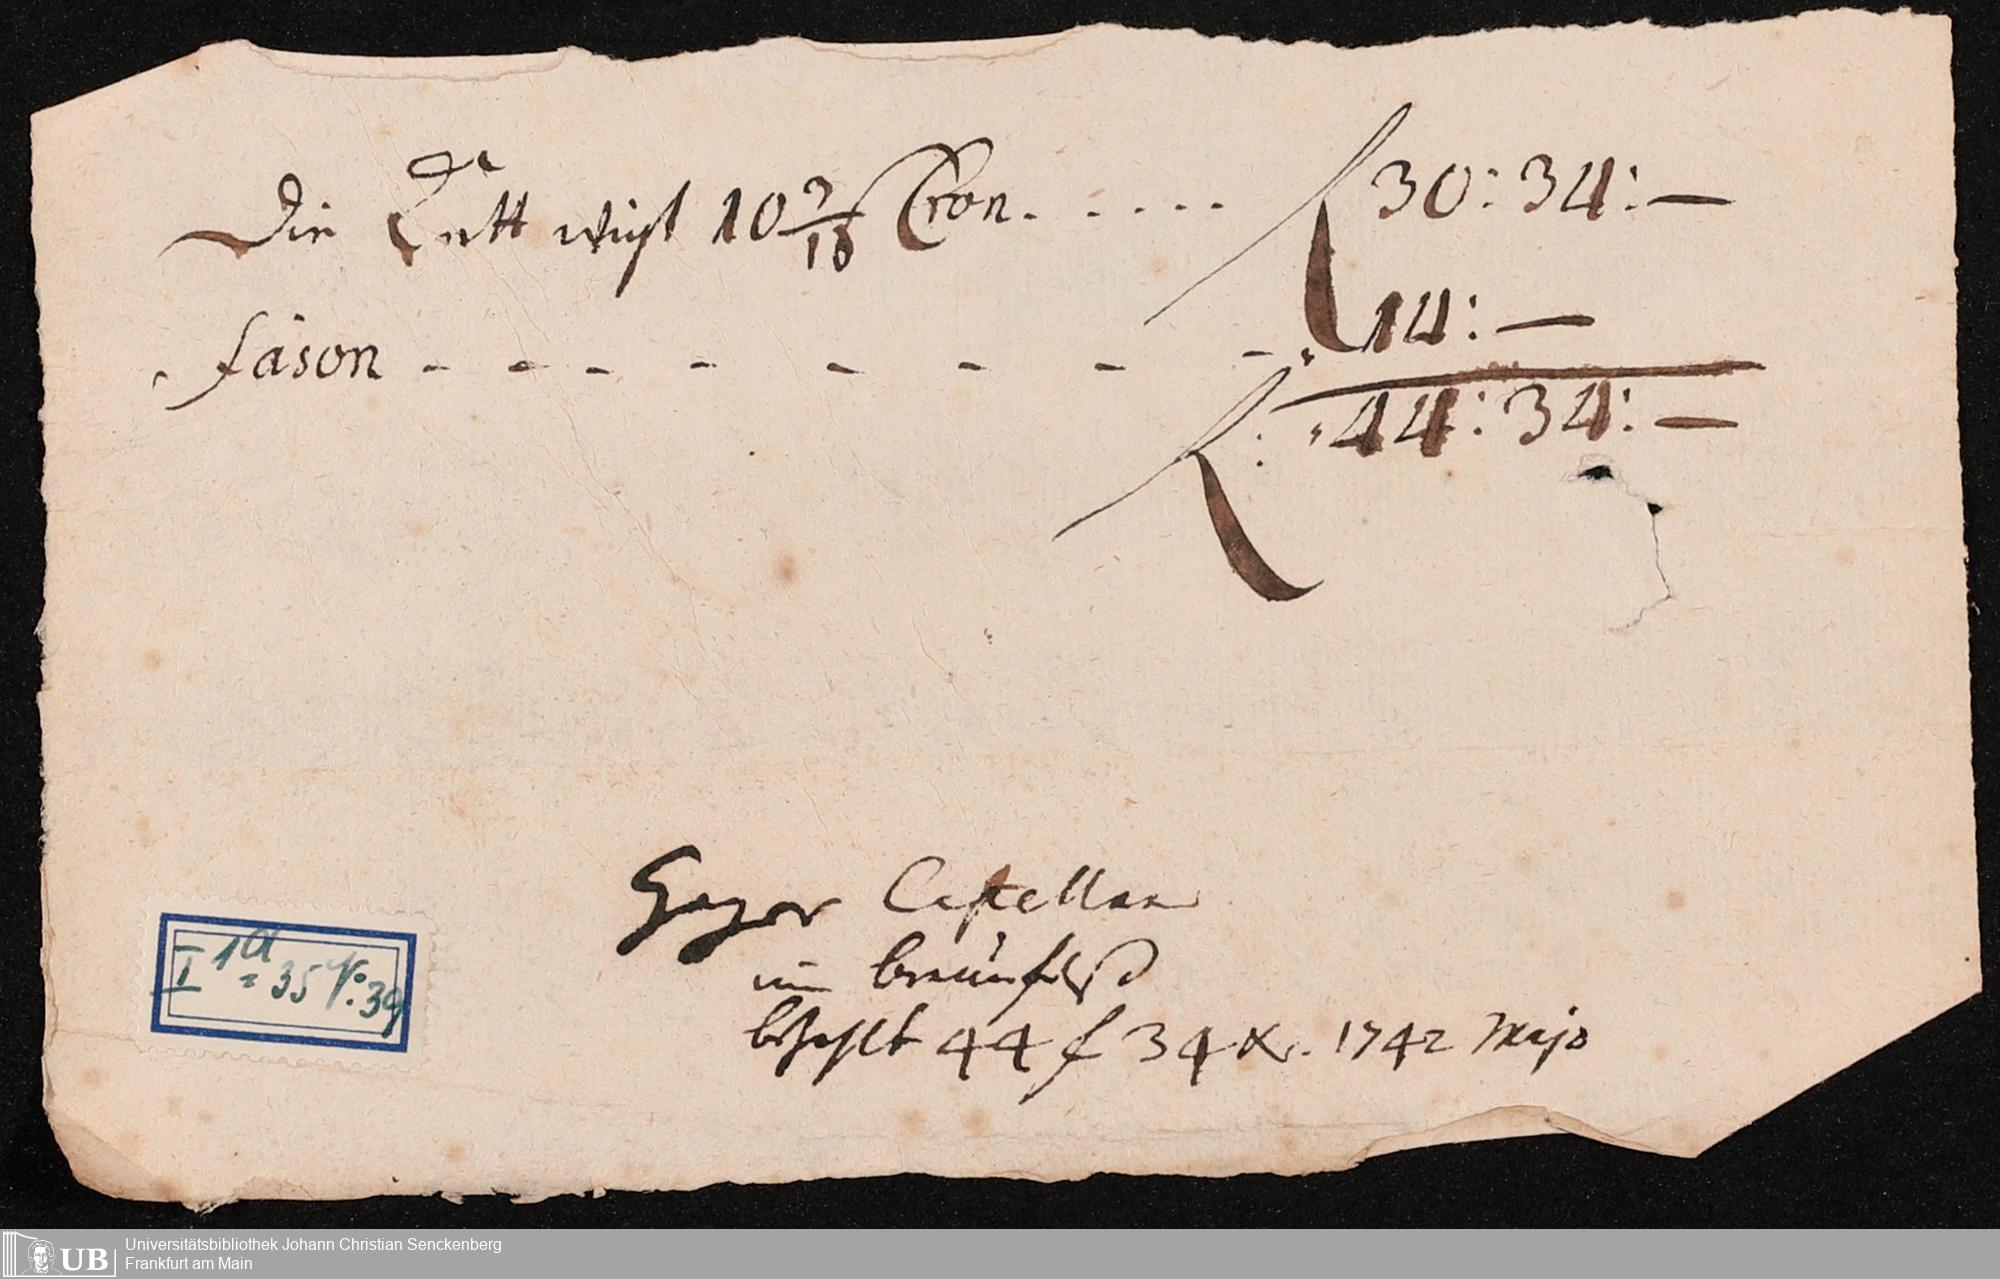 Die Kett wigt 10 3/16 Cron. . . . . . f 30 : 34 : —
fåson - - - - - - - - 14 : —
f : 44 : 34 : —
Geyer Castellan
im braunfelß
bezahlt 44 f 34 xr. 1742 Majo
I 1a = 35 No: 39
UB
Universitätsbibliothek Johann Christian Senckenberg
Frankfurt am Main